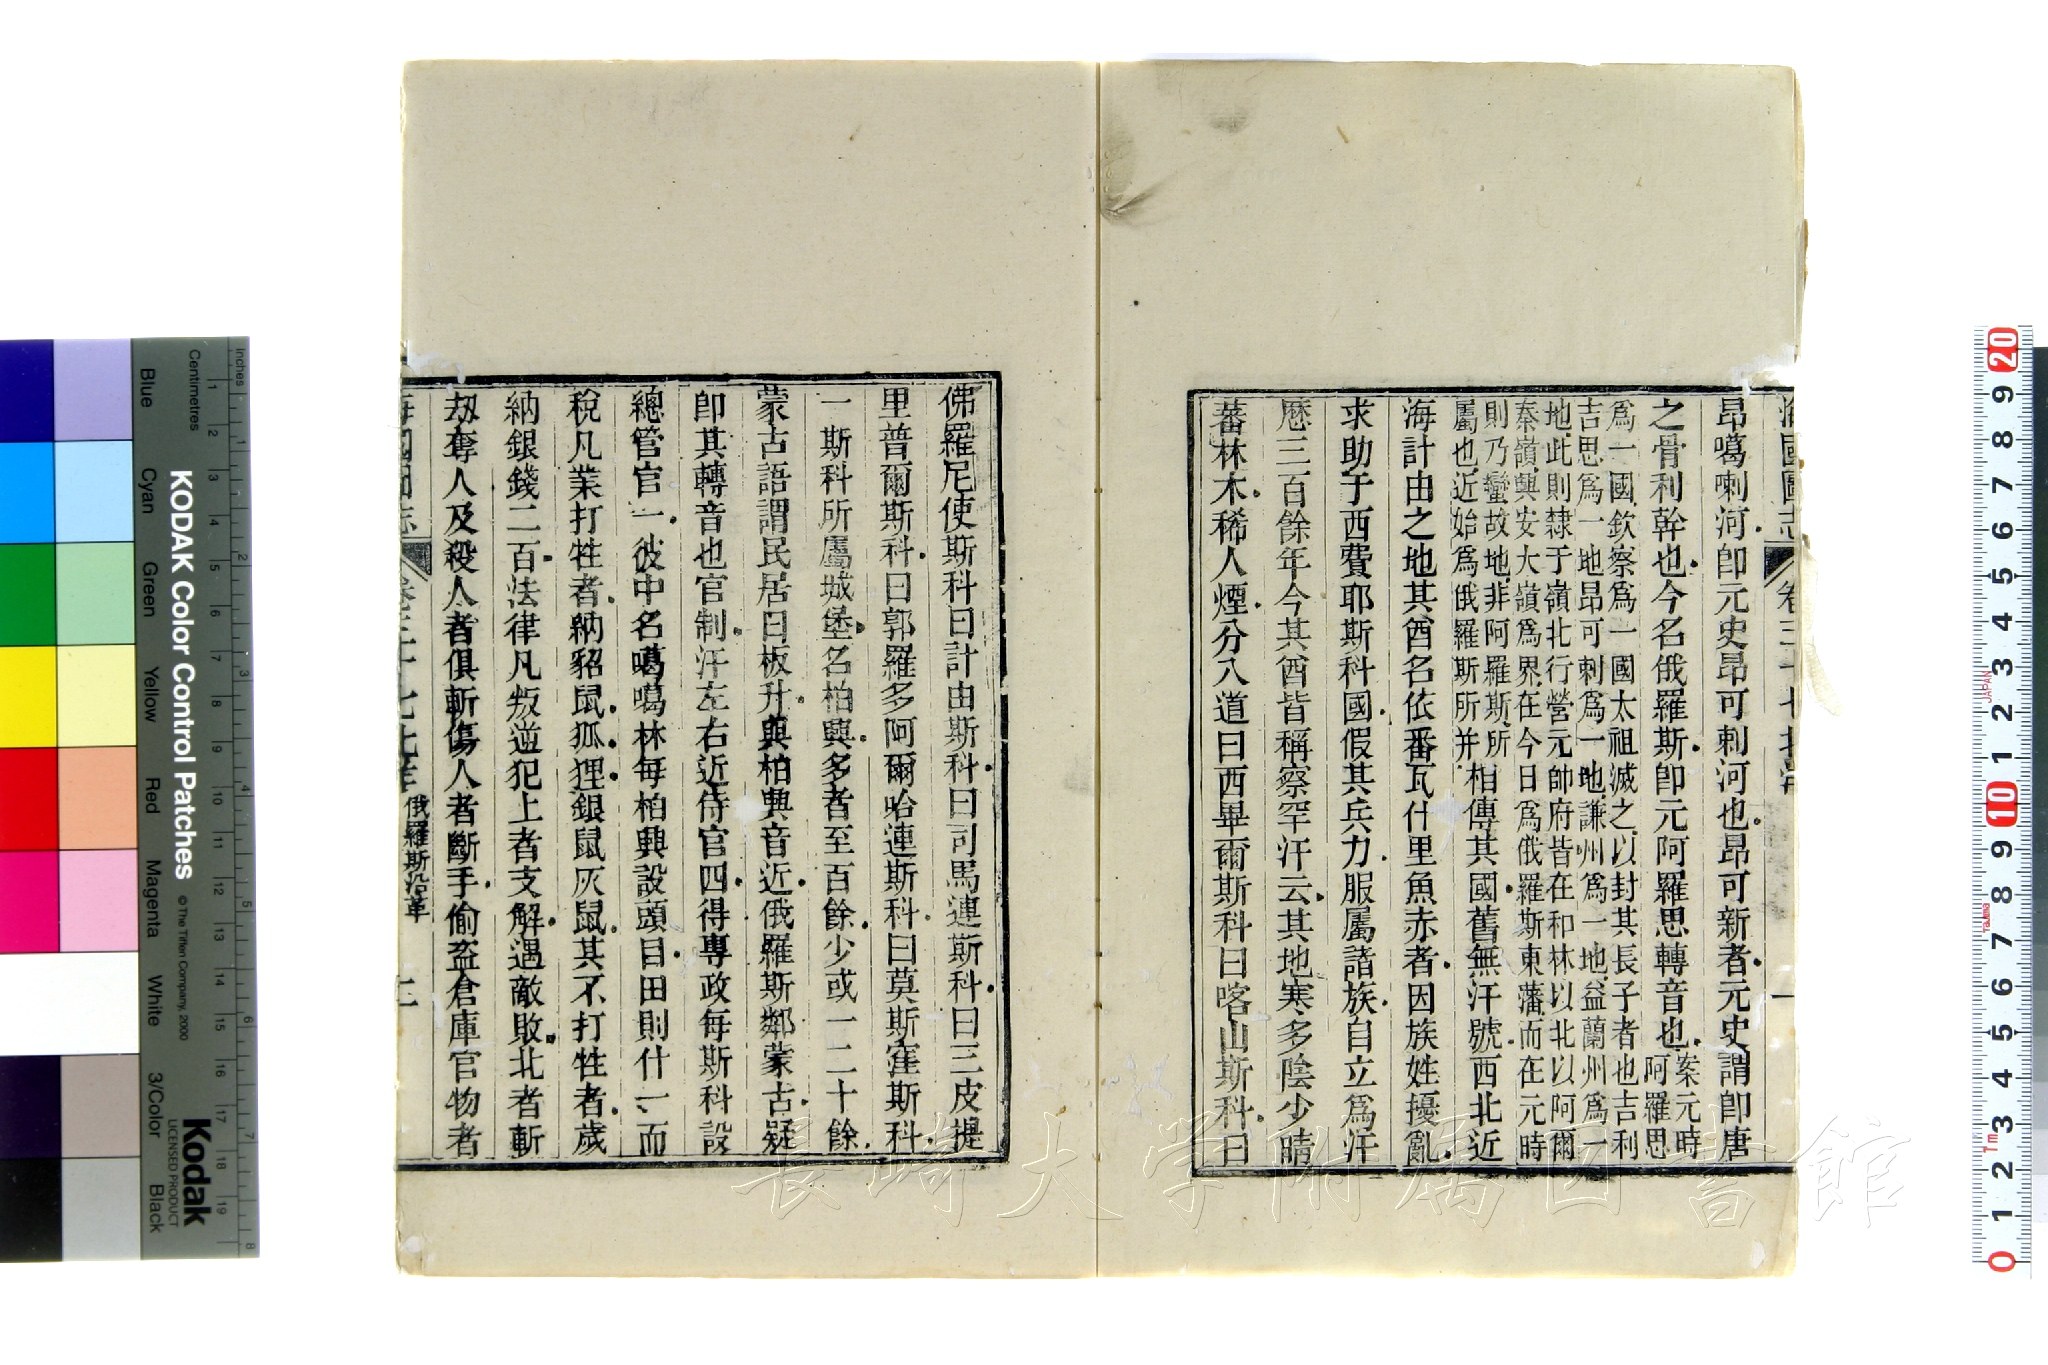 昂噶喇河卽元史昂可剌河也昂可新者元史謂卽唐
之骨利幹也今名俄羅斯卽元阿羅思轉音也
案元時
阿羅思
爲一國欽察爲一國太祖滅之以封其長子者也吉利
吉思爲一地昂可剌爲一地謙州爲一地益蘭州爲一
地此則隸于嶺北行營元帥府皆在和林以北以阿爾
泰嶺興安大嶺爲界在今日爲俄羅斯東藩而在元時
則乃蠻故地非阿羅斯所
屬也近始爲俄羅斯所并
相傳其國舊無汗號西北近
海計由之地其酋名依番瓦什里魚赤者因族姓擾亂
求助于西費耶斯科國假其兵力服屬諸族自立爲汗
歷三百餘年今其酋皆稱察罕汗云其地寒多陰少晴
蕃林木稀人煙分八道曰西畢爾斯科曰喀山斯科曰
佛羅尼使斯科曰計由斯科曰司馬連斯科曰三皮提
里普爾斯科曰郭羅多阿爾哈連斯科曰莫斯窪斯科
一斯科所屬城堡名柏興多者至百餘少或一二十餘
蒙古語謂民居曰板升與柏興音近俄羅斯鄰蒙古疑
卽其轉音也官制汗左右近侍官四得專政每斯科設
總管官一彼中名噶噶林每柏興設頭目田則什一而
稅凡業打牲者納貂鼠狐狸銀鼠灰鼠其不打牲者歲
納銀錢二百法律凡叛逆犯上者支解遇敵敗北者斬
刼奪人及殺人者俱斬傷人者斷手偷盜倉庫官物者
俄羅斯沿革
KODAK Color Control Patches
© The Tiffen Company, 2000
Kodak
LICENSED PRODUCT
Inches
Centimetres
Blue
Cyan
Green
Yellow
Red
Magenta
White
3/Color
Black
長崎大学附属図書館